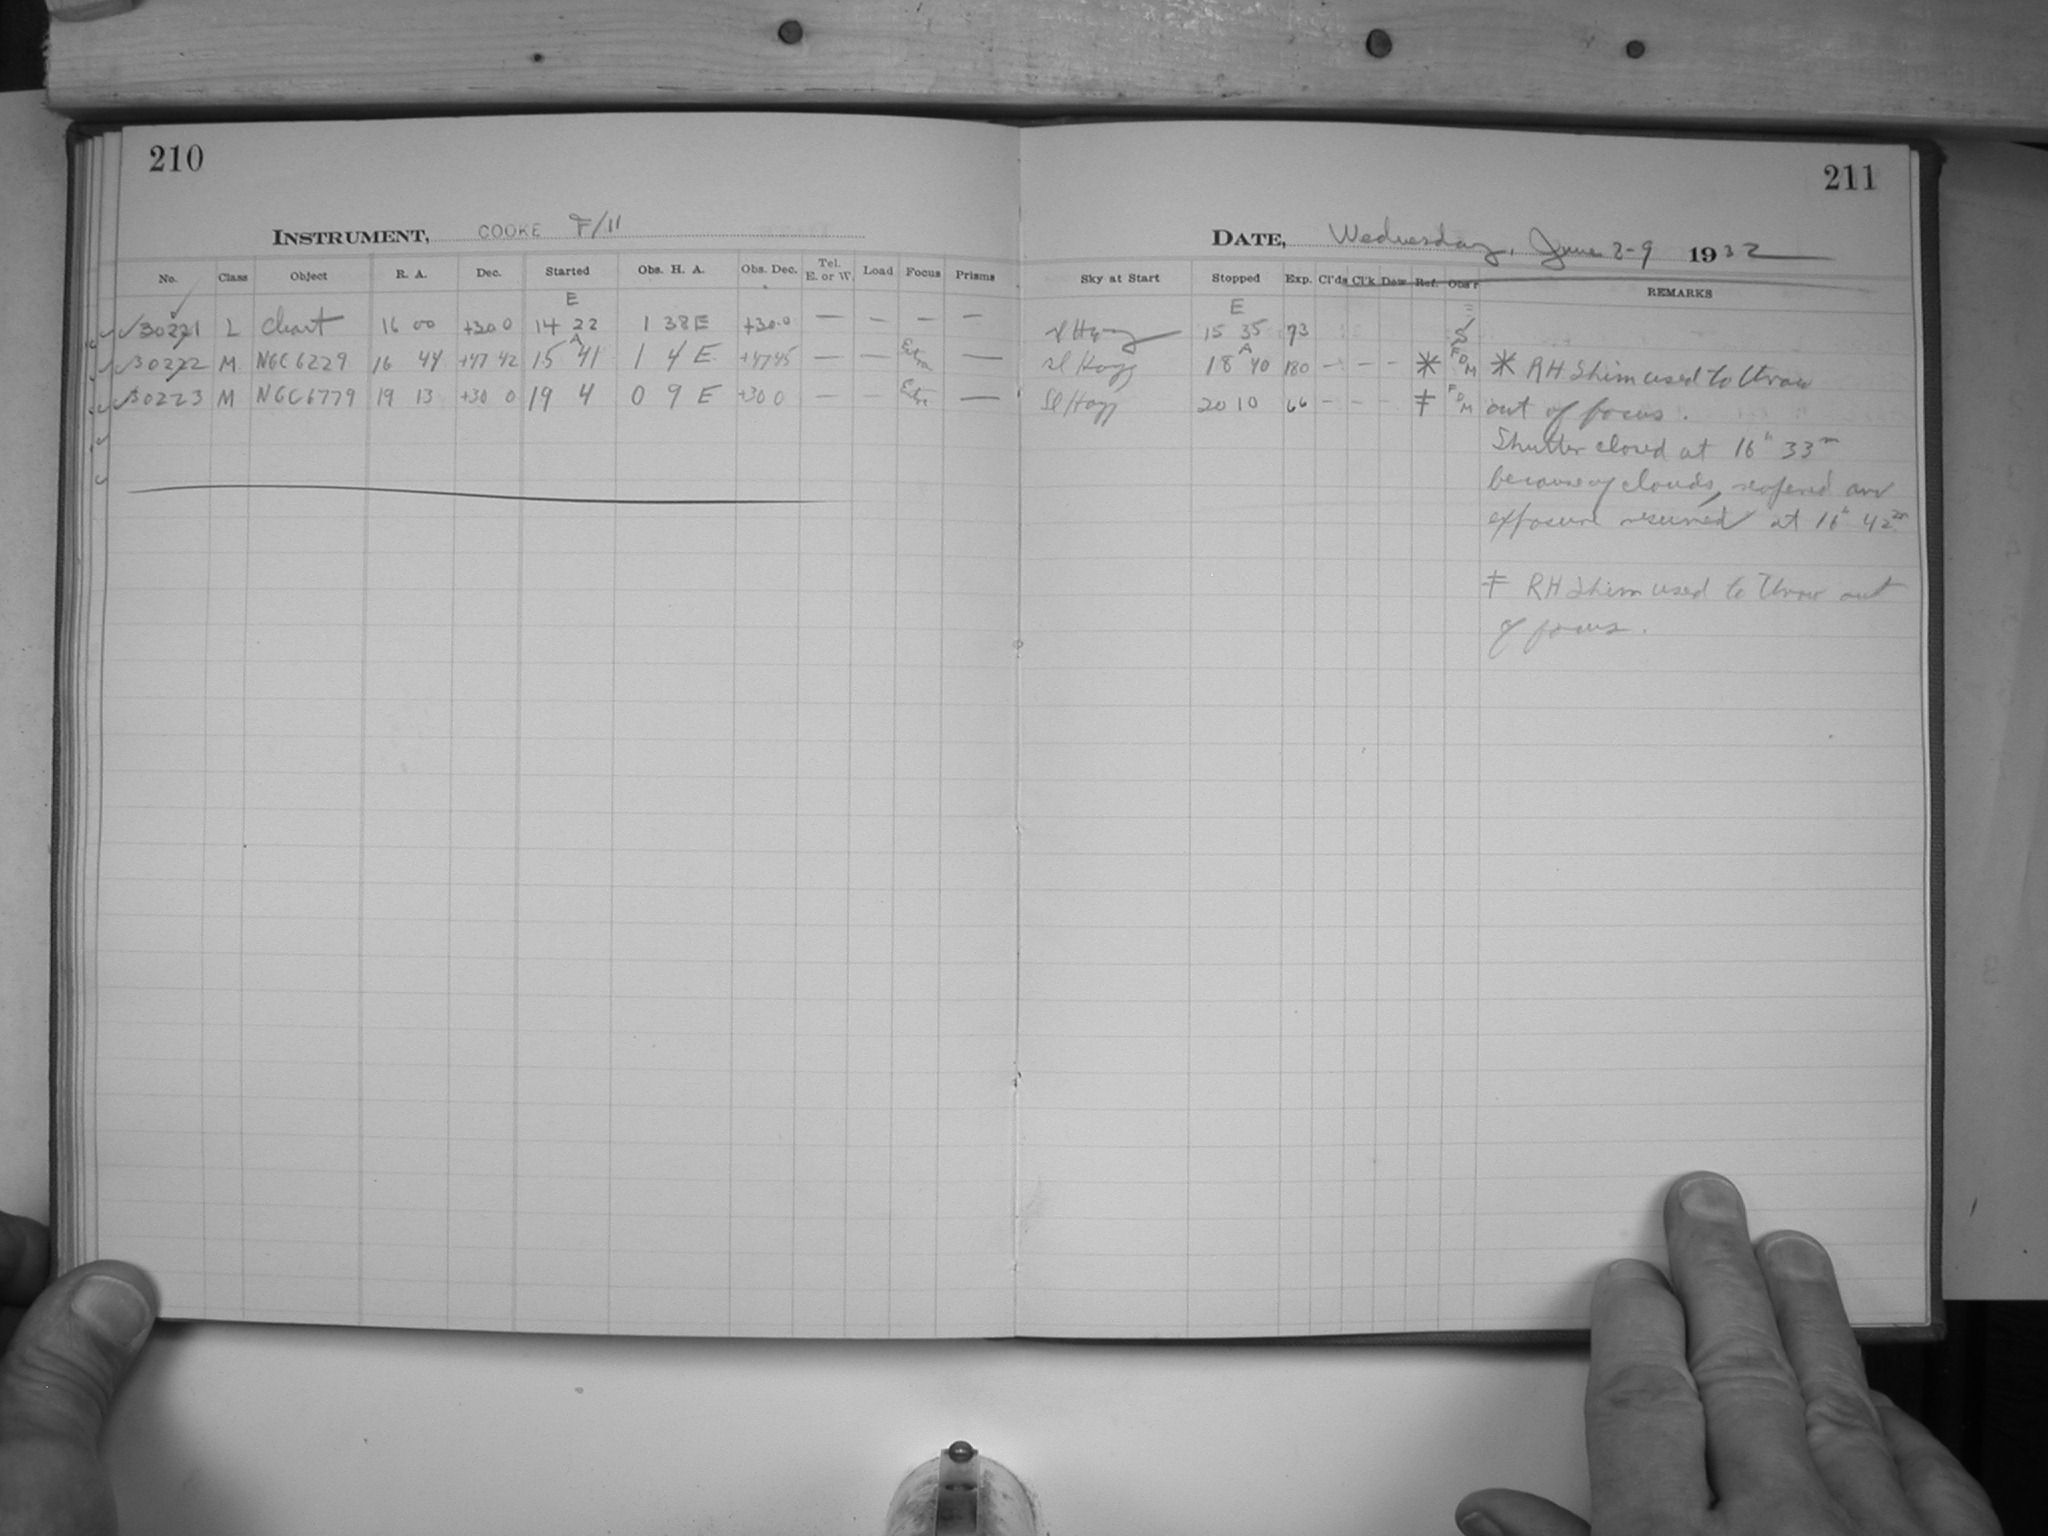 210
211
INSTRUMENT, COOKE F/11
DATE, Wednesday, June 8-9 1932
No. Class Object R. A. Dec. Started Obs. H. A. Obs. Dec. Tel. E. or W. Load Focus Prisms
Sky at Start Stopped Exp. Cl'ds Cl'k Dew Ref. Obs'r REMARKS
E
E
30221 L Chart 16 00 +30 0 14 22 1 38 E +30.0 — — — —
sl Hazy 15 35 73
A
A
30222 M NGC 6229 16 44 +47 42 15 41 1 4 E +47 45 — — Extra —
sl Hazy 18 40 180 - - - * FDM * RH Shim used to throw
30223 M NGC 6779 19 13 +30 0 19 4 0 9 E +30 0 — — Extra —
Sl Hazy 20 10 66 - - - ‡ FDM out of focus.
Shutter closed at 16h 33m
because of clouds, reopened and
exposure resumed at 16h 42m
‡ RH Shim used to throw out
of focus.